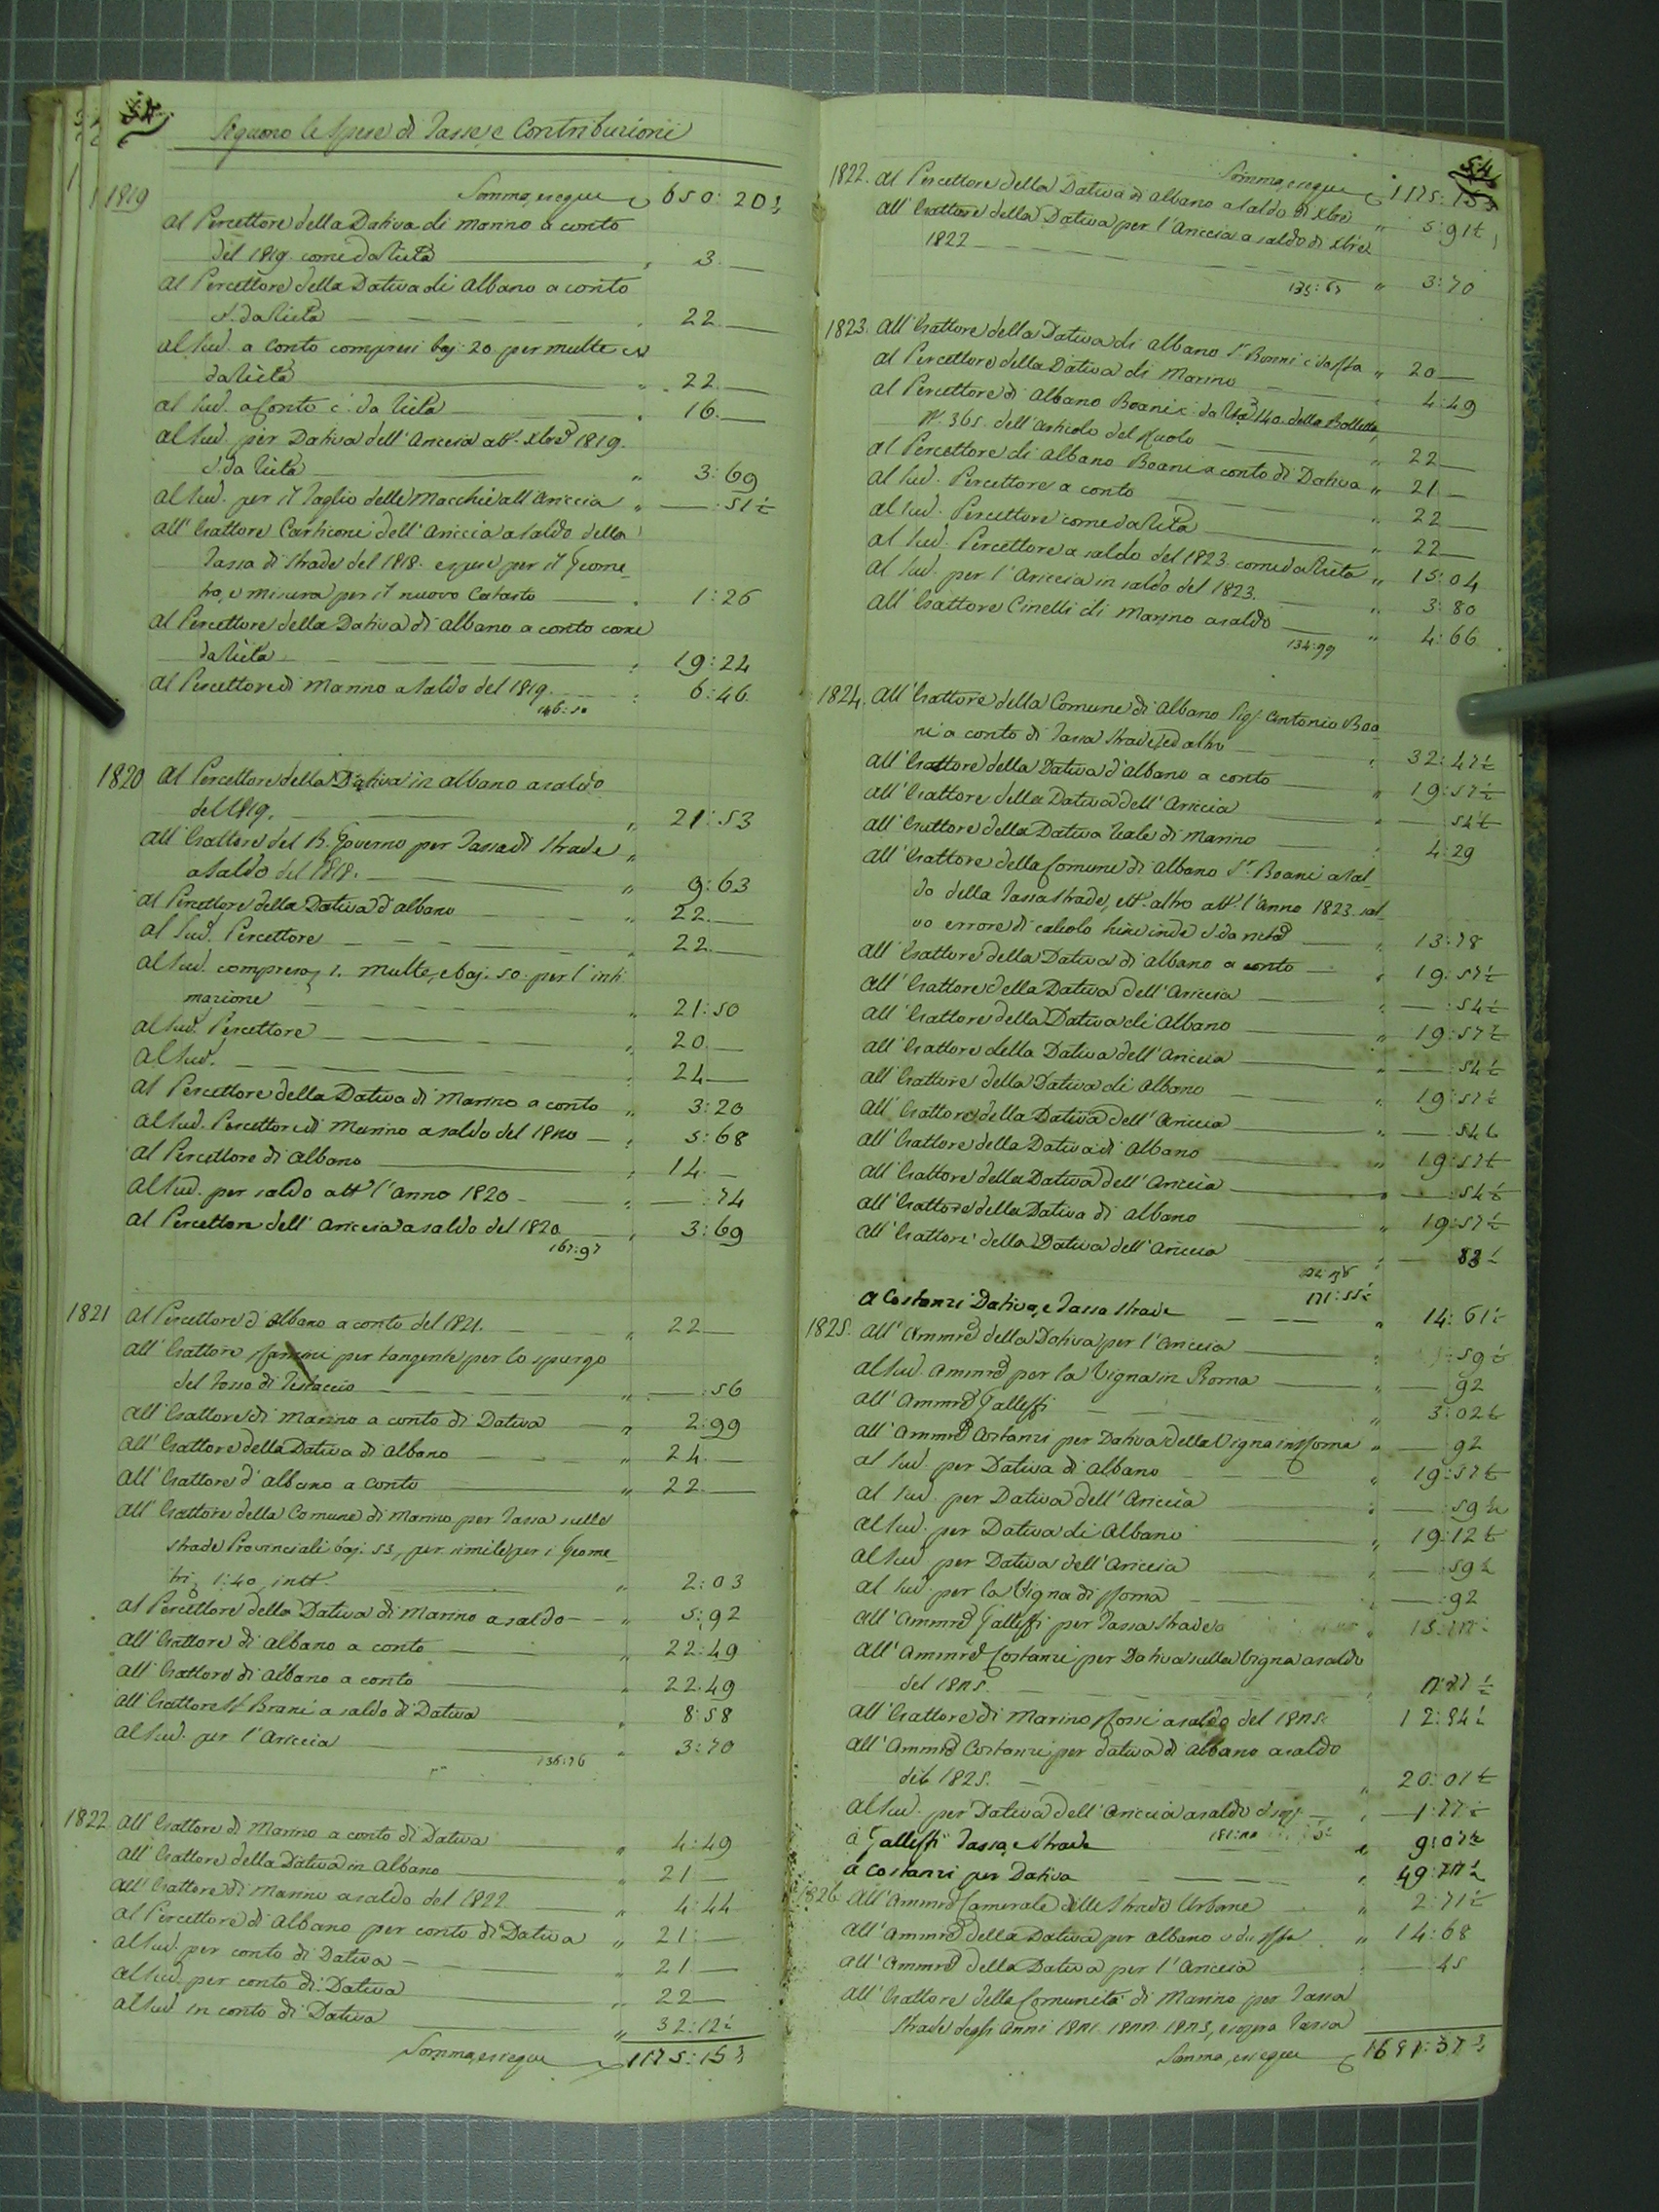 54
Seguono le Spese di Tasse, e Contribuzioni
1819
Somma, e segue 650:20½
Al Percettore della Dativa di Marino a conto
del 1819. come da Ricta 3.—
Al Percettore della Dativa di Albano a conto
c. da Ricta 22.—
Al sud. a conto compresi baj: 20 per multe c.
da Ricta " 22.—
Al sud. a conto c. da Ricta 16.—
Al sud. per Dativa dell'Ariccia att. Xbre 1819.
c. da Ricta " 3:69
Al sud. per il Taglio delle Macchie all'Ariccia " —:51½
All'Esattore Carticoni dell'Ariccia a saldo della
Tassa di Strade del 1818. e spese per il Geome-
tra, e misura per il nuovo Catasto 1:26
Al Percettore della Dativa di Albano a conto come
da Ricta 19:24
Al Percettore di Marino a saldo del 1819. 6:46
146:50
1820 Al Percettore della Dativa in Albano a saldo
del 1819. " 21:53
All'Esattore del B. Governo per Tassa di Strade "
a saldo del 1818. " 9:63
Al Percettore della Dativa d'Albano " 22.—
Al sud. Percettore 22.—
Al sud. compreso 1. multe, e baj. 50: per l'inti
mazione " 21:50
Al sud. Percettore " 20.—
Al sud. 24—
Al Percettore della Dativa di Marino a conto " 3:20
Al sud. Percettore di Marino a saldo del 1820 — 5:68
Al Percettore di Albano 14.—
Al sud. per saldo att. l'Anno 1820 — —:74
Al Percettore dell'Ariccia a saldo del 1820 3:69
167:97
1821 Al Percettore d'Albano a conto del 1821. " 22—
All'Esattore per tangente per lo spurgo
del Fosso di Testaccio " —:56
All'Esattore di Marino a conto di Dativa " 2:99
All'Esattore della Dativa di Albano " 24.—
All'Esattore d'Albano a conto " 22.—
All'Esattore della Comune di Marino per Tassa sulle
strade Provinciali baj: 53, per simile per i Geome-
tri 1:40 intt. " 2:03
Al Percettore della Dativa di Marino a saldo — " 5:92
All'Esattore di Albano a conto " 22:49
All'Esattore di Albano a conto " 22.49
All'Esattore a saldo di Dativa " 8:58
Al sud. per l'Ariccia " 3:70
136:76
1822 All'Esattore di Marino a conto di Dativa " 4:49
All'Esattore della Dativa in Albano " 21—
All'Esattore di Marino a saldo del 1822 " 4:44
Al Percettore di Albano per conto di Dativa " 21:—
Al sud. per conto di Dativa — " 21—
Al sud. per conto di Dativa " 22—
Al sud. in conto di Dativa " 32:12½
Somma, e segue 1175:15½
54
Somma, e segue 1175:15½
1822. Al Percettore della Dativa di Albano a saldo di Xbre " 5:91½
All'Esattore della Dativa per l'Ariccia a saldo di Xbre
1822 " 3:70
135:67
1823. All'Esattore della Dativa di Albano " 20—
Al Percettore della Dativa di Marino 4:49
Al Percettore di Albano Boani c. da Ricta 140. della Bolletta
N. 365. dell'Articolo del Ruolo " 22—
Al Percettore di Albano Boani a conto di Dativa " 21—
Al sud. Percettore a conto " 22—
Al sud. Percettore come da Ricta " 22—
Al sud. Percettore a saldo del 1823. come da Ricta " 15:04
Al sud. per l'Ariccia in saldo del 1823. " 3:80
All'Esattore Cinelli di Marino a saldo " 4:66
134:99
1824. All'Esattore della Comune di Albano Sig. Antonio Boa-
ni a conto di Tassa Strade, ed altro 32:47½
All'Esattore della Dativa d'Albano a conto " 19:57½
All'Esattore della Dativa dell'Ariccia " —54½
All'Esattore della Dativa Reale di Marino " 4:29
All'Esattore della Comune di Albano Sr. Boani a sal-
do della Tassa Strade, ett. altro att. l'Anno 1823. sal
vo errore di calcolo hinc inde c. da ricta " 13:78
All'Esattore della Dativa di Albano a conto — " 19:57½
All'Esattore della Dativa dell'Ariccia " —:54½
All'Esattore della Dativa di Albano " 19:57½
All'Esattore della Dativa dell'Ariccia " —:54½
All'Esattore della Dativa di Albano " 19:57½
All'Esattore della Dativa dell'Ariccia " —:54½
All'Esattore della Dativa di Albano " 19:57½
All'Esattore della Dativa dell'Ariccia " —:54½
All'Esattore della Dativa di Albano " 19:57½
All'Esattore della Dativa dell'Ariccia — 83½
171:55½
a Costanzi Dativa, e Tassa Strade " 14:61½
1825. All'Ammre della Dativa per l'Ariccia " —:59½
Al sud. Ammre per la Vigna in Roma " — 92
All'Ammre Galleffi " 3:02½
All'Ammre Costanzi per Dativa della Vigna in Roma " — 92
Al sud. per Dativa di Albano " 19:57½
Al sud. per Dativa dell'Ariccia —:59½
Al sud. per Dativa di Albano " 19:12½
Al sud. per Dativa dell'Ariccia —:59½
Al sud. per la Vigna di Roma —:92
All'Ammre Galleffi per Tassa Strade
All'Ammre Costanzi per Dativa sulla Vigna a saldo
del 1825.
All'Esattore di Marino Rossi a saldo del 1825. 12:94½
All'Ammre Costanzi per dativa di Albano a saldo
del 1825. " 20:01½
Al sud. per Dativa dell'Ariccia a saldo —1:77½
a Galleffi Tassa, e Strade " 9:07½
a Costanzi per Dativa
1826. All'Ammre Camerale delle Strade Urbane " 2:71½
All'Ammre della Dativa per Albano " 14:68
All'Ammre della Dativa per l'Ariccia — 45
All'Esattore della Comunità di Marino per Tassa
Strade degli Anni 1821. 1822. 1823, e sopra Tassa
Somma, e segue 1691:37½